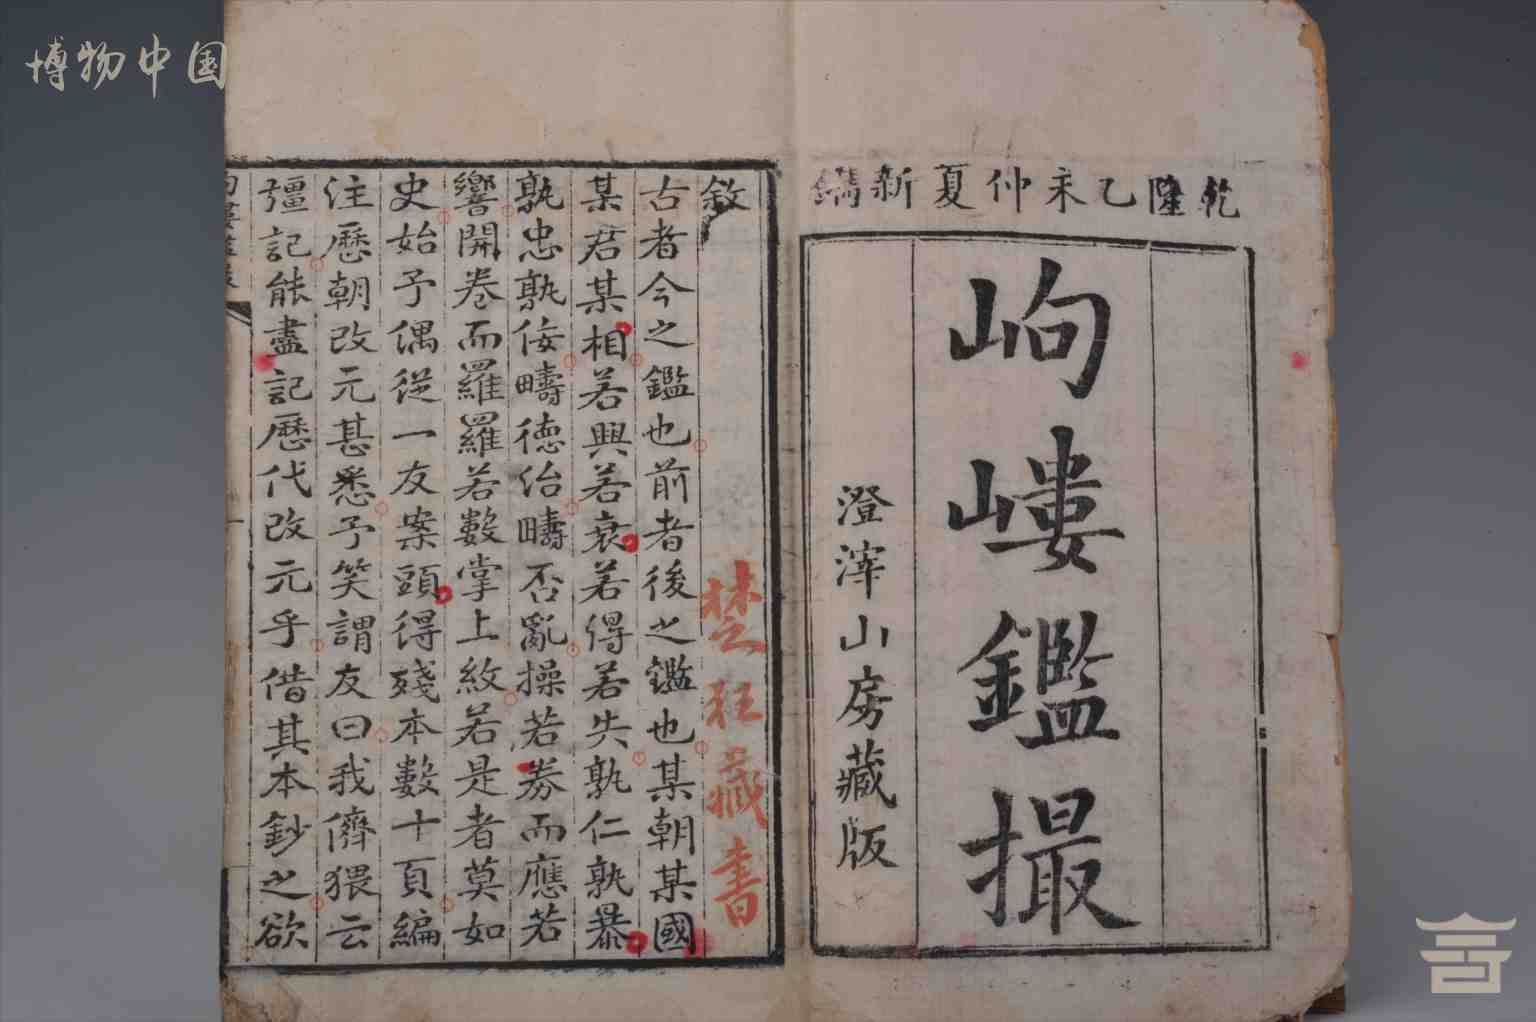 博物中国
乾隆乙未仲夏新鐫
岣嶁鑑撮
澄滓山房藏版
敘
楚狂藏書
古者今之鑑也前者後之鑑也某朝某國
某君某相若興若衰若得若失孰仁孰暴
孰忠孰佞疇德疇否亂操若券而應若
響開卷而羅羅若數掌上紋若是者莫如
史始予偶從一友案頭得殘本數十頁編
注歷朝改元甚悉予笑謂友曰我儕猥云
彊記能盡記歷代改元乎借其本鈔之欲